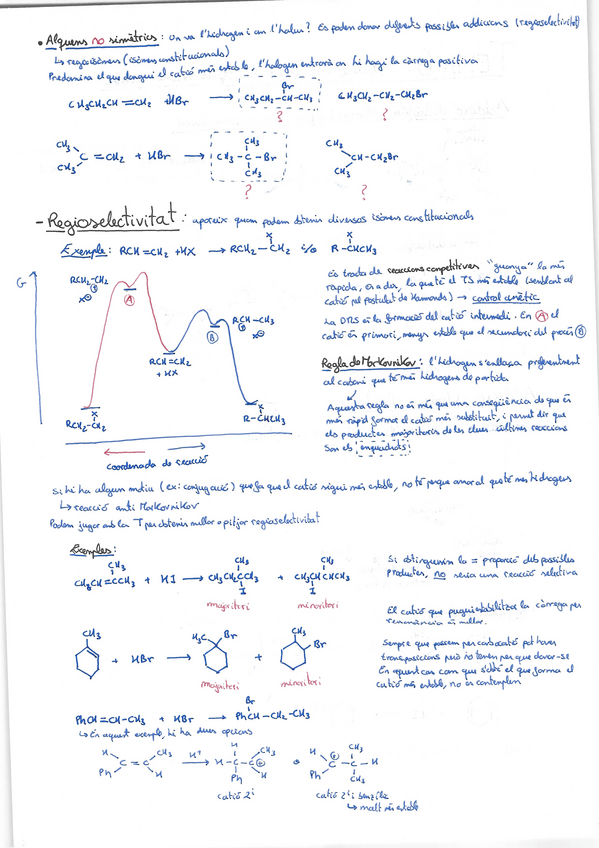 • Alquens no simètrics: On va l'hidrogen i on l'halur? Es poden donar diferents possibles addicions (regioselectivitat)
↳ regioisòmers (isòmers constitucionals)
Predomina el que dongui el catió més estable, l'halogen entrarà on hi hagi la càrrega positiva
CH3CH2CH=CH2 + HBr → CH3CH2-CH-CH3 CH3CH2-CH2-CH2Br
Br
? ?
CH3
CH3 C=CH2 + HBr → CH3-C-Br
CH3
CH3
CH3
CH3 CH-CH2Br
? ?
- Regioselectivitat: apareix quan podem obtenir diversos isòmers constitucionals
Exemple: RCH=CH2 + HX → RCH2-CH2 i/o R-CHCH3
X X
Es tracta de reaccions competitives "guanya" la més
ràpida, és a dir, la que té el TS més estable (semblant al
catió pel postulat de Hammond) → control cinètic
La DRS és la formació del catió intermedi. En A el
catió és primari, menys estable que el secundari del procés B
G
RCH2-CH2
⊕
X⊖
A
RCH=CH2
+ HX
B
RCH-CH3
⊕
X⊖
X
RCH2-CH2
X
R-CHCH3
coordenada de reacció
Regla de Markovnikov: l'hidrogen s'enllaça preferentment
al carboni que té més hidrogens de partida
Aquesta regla no és més que una conseqüència de que és
més ràpid formar el catió més substituit, i permet dir que
els productes majoritaris de les dues últimes reaccions
són els enquadrats
Si hi ha algun motiu (ex: conjugació) que fa que el catió sigui més estable, no té perque anar al que té més hidrogens
↳ reacció anti Markovnikov
Podem jugar amb la T per obtenir millor o pitjor regioselectivitat
Exemples:
CH3
CH3CH=CCH3 + HI → CH3CH2CCH3 + CH3CHCHCH3
CH3 CH3
I I
majoritari minoritari
Si obtinguessim la = proporció dels possibles
productes, no seria una reacció selectiva
El catió que pugui estabilitzar la càrrega per
ressonància és millor.
CH3
+ HBr →
H3C Br
+
CH3
Br
majoritari minoritari
Sempre que passem per carbocatió pot haver
transposicions però no tenen per que donar-se
En aquest cas com que s'obté el que forma el
catió més estable, no es contemplen
Br
PhCH=CH-CH3 + HBr → PhCH-CH2-CH3
↳ En aquest exemple, hi ha dues opcions
H CH3
C=C
Ph H
H+
→
H
H-C-C⊕
Ph
CH3
H
o
H
C⊕
Ph
CH3
C-H
CH3
catió 2ⁱ catió 2ⁱ i benzílic
↳ molt més estable